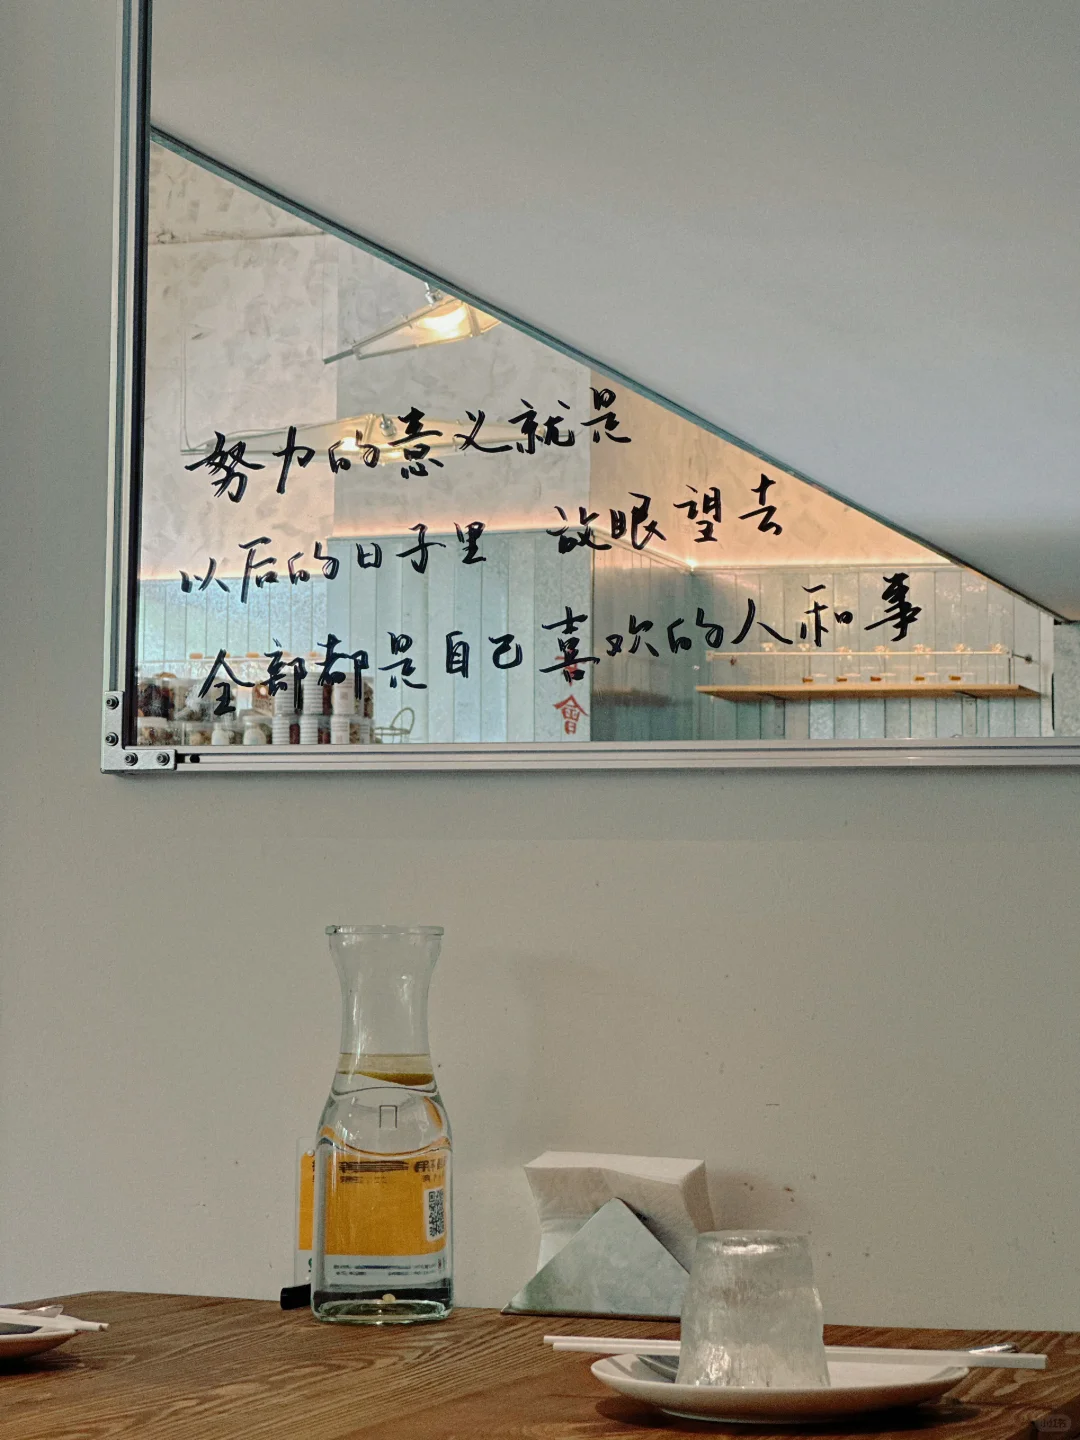 努力的意义就是
以后的日子里 放眼望去
全部都是自己喜欢的人和事
會
小红书